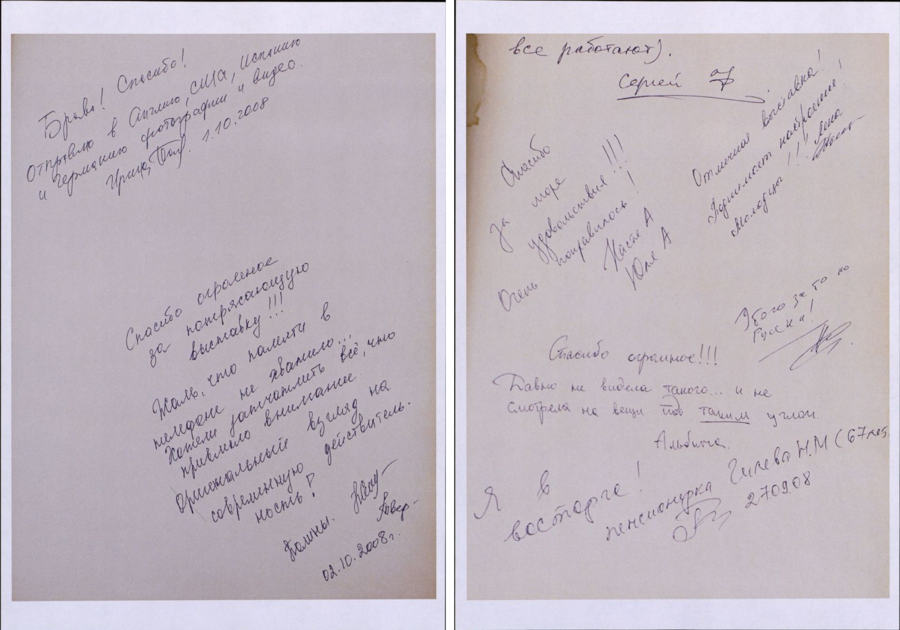 Браво! Спасибо!
Отправлю в Англию, США, Испанию
и Германию фотографии и видео.
Ирина, 1.10.2008
Спасибо огромное
за потрясающую
выставку!!!
Жаль, что памяти в
телефоне не хватило...
Хотели запечатлеть всё, что
привлекло внимание.
Оригинальный взгляд на
современную действитель-
ность!
02.10.2008г.
все работают).
Сергей
Спасибо
за море
удовольствия!!!
Очень понравилось!
Настя А
Юля А
Отличная выставка!
Поднимает настроение!
Молодцы!!! Лена
Убого за то по
Русски!
Спасибо огромное!!!
Давно не видела такого... и не
смотрела на вещи под таким углом.
Альбина.
Я в
восторге!
пенсионерка Гилева Н.М (67 лет)
270908